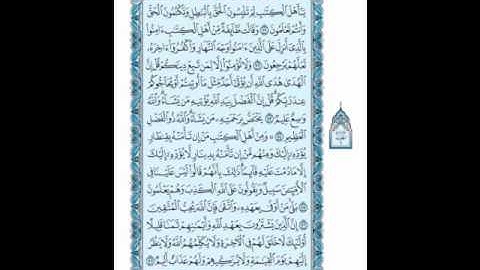 يَٰٓأَهْلَ ٱلْكِتَٰبِ لِمَ تَلْبِسُونَ ٱلْحَقَّ بِٱلْبَٰطِلِ وَتَكْتُمُونَ ٱلْحَقَّ
وَأَنتُمْ تَعْلَمُونَ ٧١ وَقَالَت طَّآئِفَةٌ مِّنْ أَهْلِ ٱلْكِتَٰبِ ءَامِنُوا۟
بِٱلَّذِىٓ أُنزِلَ عَلَى ٱلَّذِينَ ءَامَنُوا۟ وَجْهَ ٱلنَّهَارِ وَٱكْفُرُوٓا۟ ءَاخِرَهُۥ
لَعَلَّهُمْ يَرْجِعُونَ ٧٢ وَلَا تُؤْمِنُوٓا۟ إِلَّا لِمَن تَبِعَ دِينَكُمْ قُلْ إِنَّ
ٱلْهُدَىٰ هُدَى ٱللَّهِ أَن يُؤْتَىٰٓ أَحَدٌ مِّثْلَ مَآ أُوتِيتُمْ أَوْ يُحَآجُّوكُمْ
عِندَ رَبِّكُمْ قُلْ إِنَّ ٱلْفَضْلَ بِيَدِ ٱللَّهِ يُؤْتِيهِ مَن يَشَآءُ وَٱللَّهُ
وَٰسِعٌ عَلِيمٌ ٧٣ يَخْتَصُّ بِرَحْمَتِهِۦ مَن يَشَآءُ وَٱللَّهُ ذُو ٱلْفَضْلِ
ٱلْعَظِيمِ ٧٤ وَمِنْ أَهْلِ ٱلْكِتَٰبِ مَنْ إِن تَأْمَنْهُ بِقِنطَارٍ
يُؤَدِّهِۦٓ إِلَيْكَ وَمِنْهُم مَّنْ إِن تَأْمَنْهُ بِدِينَارٍ لَّا يُؤَدِّهِۦٓ إِلَيْكَ
إِلَّا مَا دُمْتَ عَلَيْهِ قَآئِمًا ذَٰلِكَ بِأَنَّهُمْ قَالُوا۟ لَيْسَ عَلَيْنَا فِى
ٱلْأُمِّيِّـۧنَ سَبِيلٌ وَيَقُولُونَ عَلَى ٱللَّهِ ٱلْكَذِبَ وَهُمْ يَعْلَمُونَ
٧٥ بَلَىٰ مَنْ أَوْفَىٰ بِعَهْدِهِۦ وَٱتَّقَىٰ فَإِنَّ ٱللَّهَ يُحِبُّ ٱلْمُتَّقِينَ
٧٦ إِنَّ ٱلَّذِينَ يَشْتَرُونَ بِعَهْدِ ٱللَّهِ وَأَيْمَٰنِهِمْ ثَمَنًا قَلِيلًا
أُو۟لَٰٓئِكَ لَا خَلَٰقَ لَهُمْ فِى ٱلْءَاخِرَةِ وَلَا يُكَلِّمُهُمُ ٱللَّهُ وَلَا يَنظُرُ
إِلَيْهِمْ يَوْمَ ٱلْقِيَٰمَةِ وَلَا يُزَكِّيهِمْ وَلَهُمْ عَذَابٌ أَلِيمٌ ٧٧